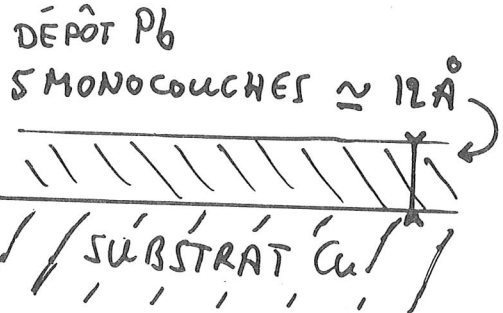 DÉPÔT Pb
5 MONOCOUCHES ≃ 12 Å
SUBSTRAT Cu